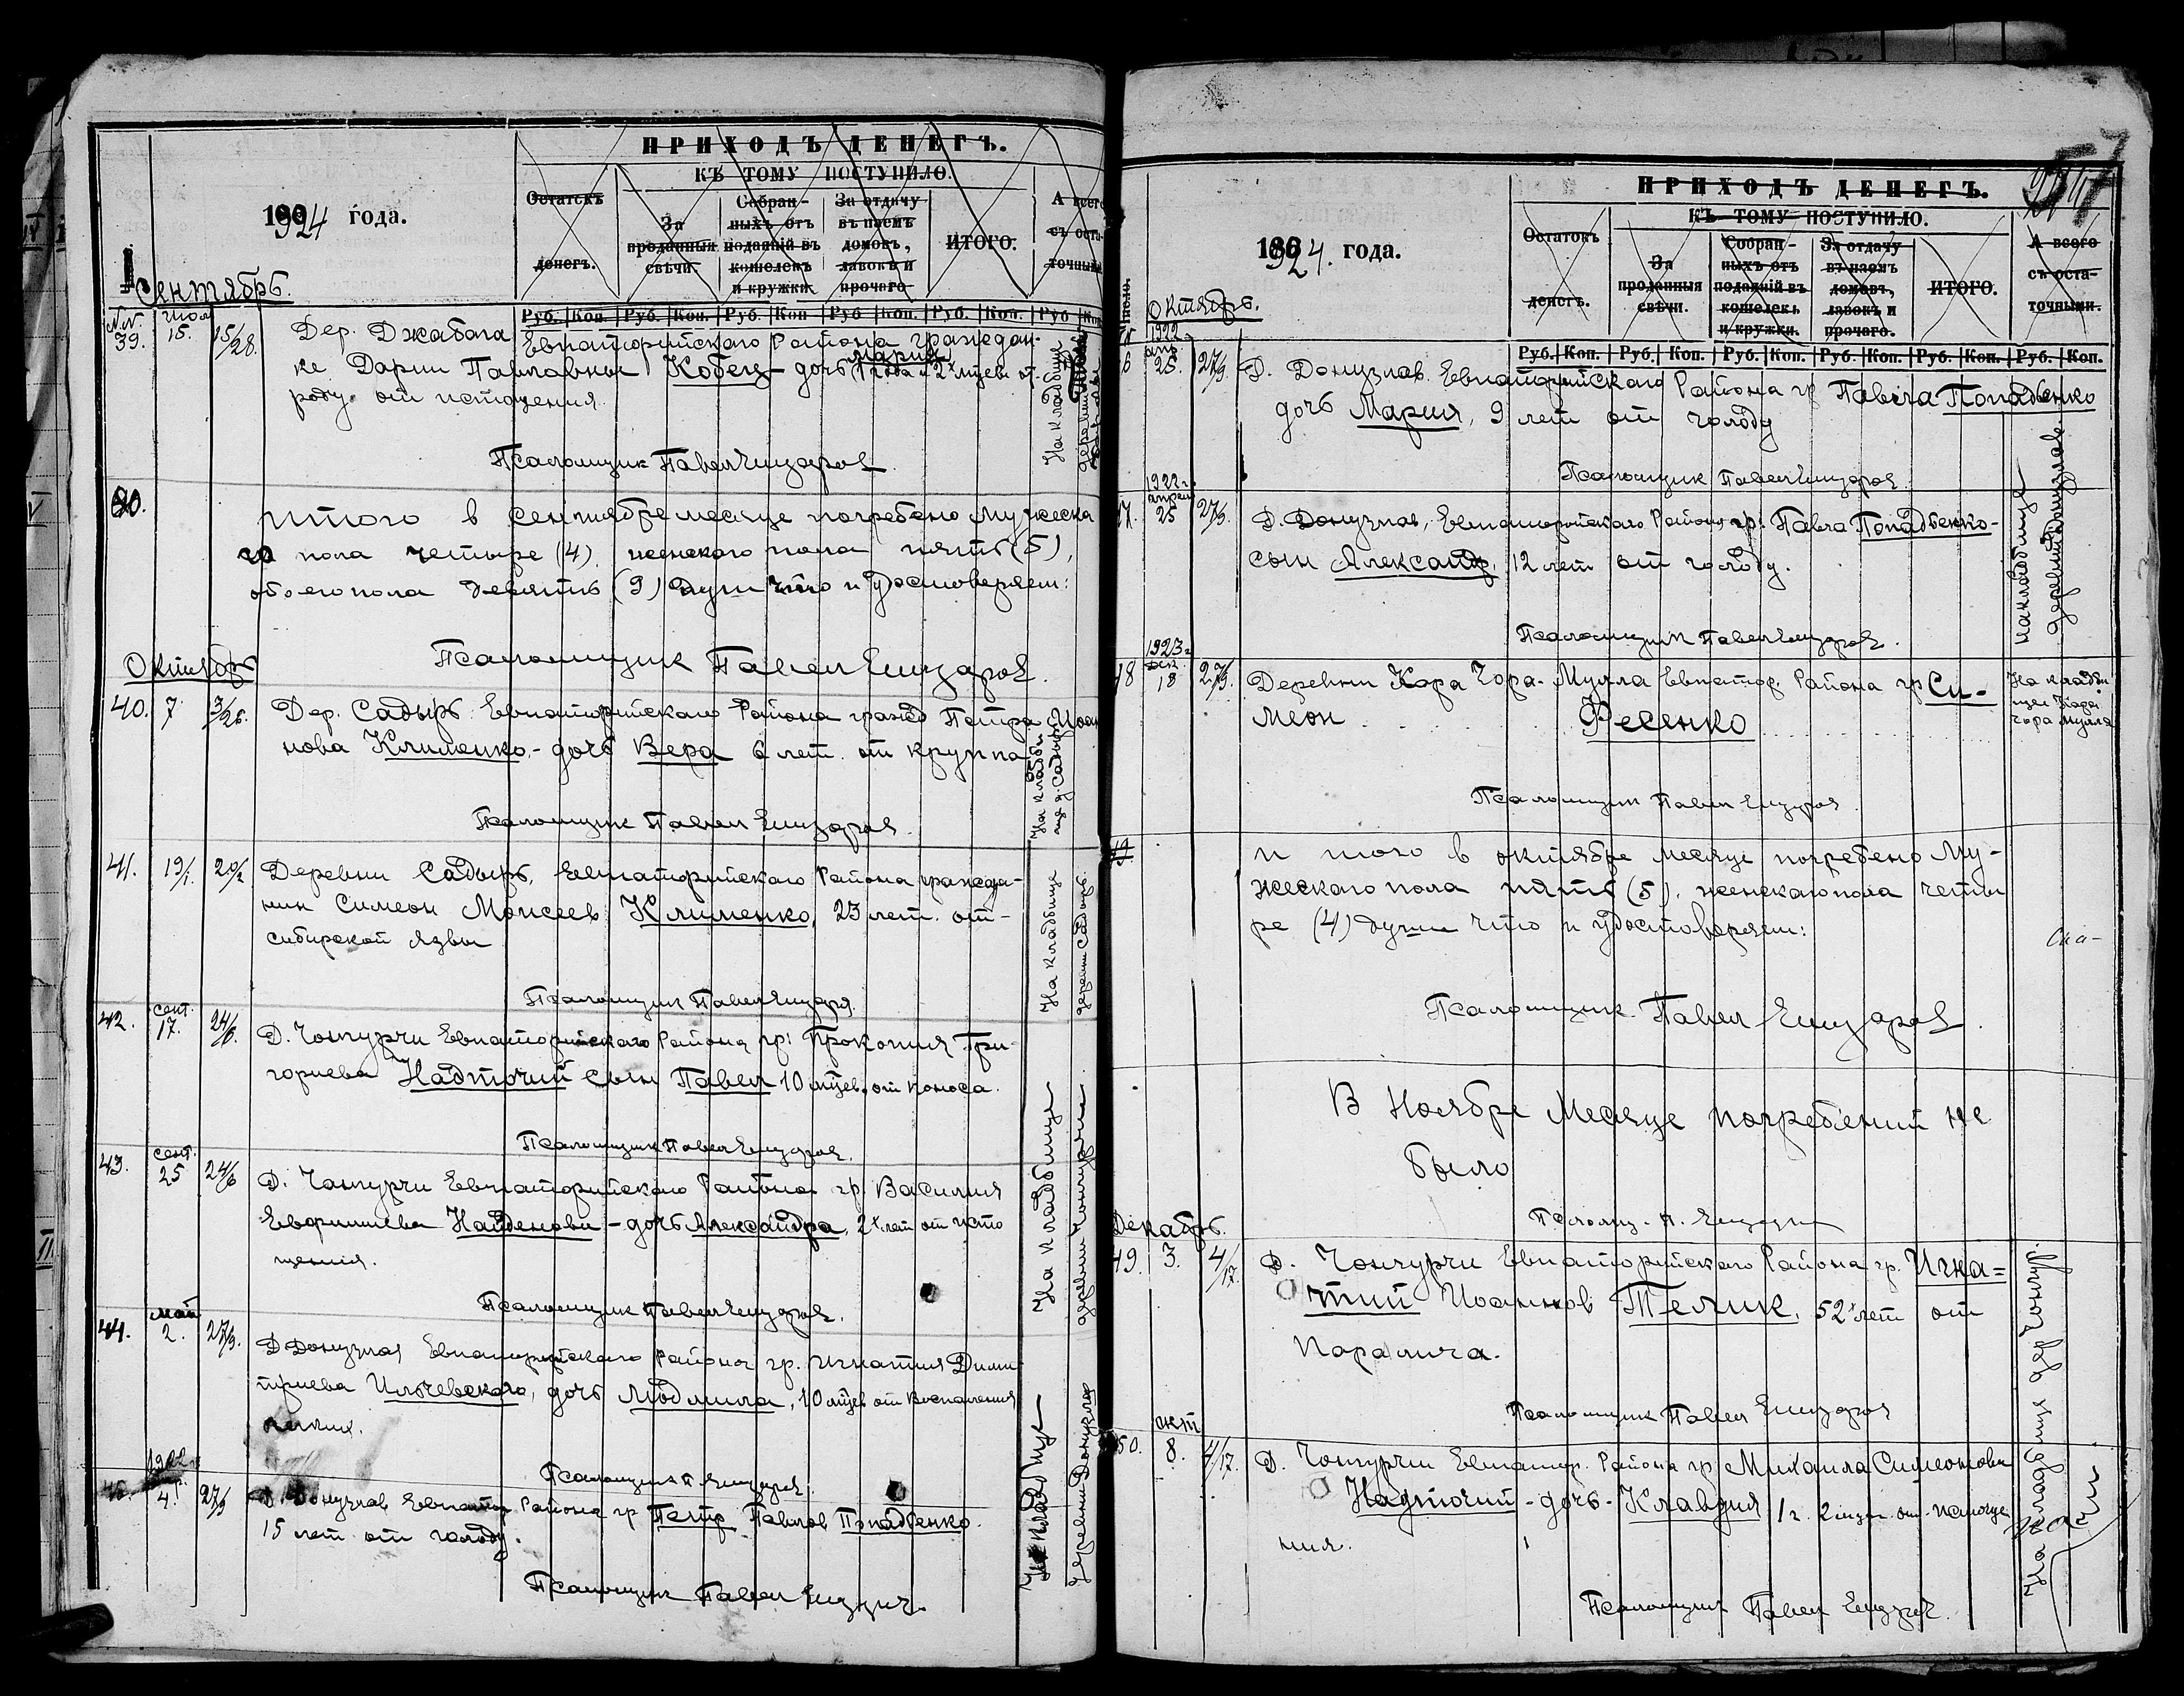 ПРИХОДЪ ДЕНЕГЪ.
КЪ ТОМУ ПОСТУПИЛО.
1924 года.
Остатокъ денегъ.
За проданныя свѣчи.
Собран-ныхъ отъ подаяній въ кошелекъ и кружки
За отдачу въ наемъ домовъ, лавокъ и прочаго
ИТОГО.
А всего съ оста-точными
Сентябрь.
Руб. Коп. Руб. Коп. Руб. Коп Руб Коп. Руб. Коп. Руб
№№ 39. 15. 15/28. Дер. Джабага Евпаторийского Района граждан-
ке Дарии Павлавны Кобец - дочь Мария 1 года и 2х мцев от
роду от истощения.
На кладбище
Псаломщик Павел
Итого в Сентябре месяце погребено мужеска
го пола четыре (4), женского пола пять (5),
обоего пола девять (9) душ что и удостоверяем:
Псаломщик Павел
Октябрь
40. 7 Дер. Садыр Евпаторийского Района гражд Петра Иоан
нова Клименко - дочь Вера 6 лет от крупа
На кладби
ще д. Садыр
Псаломщик Павел
41. 19/1. 20/2 Деревни Садыр, Евпаторийского Района гражда-
нин Симеон Моисеев Клименко, 23 лет. от-
сибирской язвы
На кладбище
деревни Садыр.
Псаломщик Павел
42. сент. 17. 24/6. Д. Чонгурчи Евпаторийскаго Района гр: Прокопия Гри-
гориева Надточий сын Павел 10 мцев. от поноса.
Псаломщик Павел
43. сент. 25 24/6 Д. Чонгурчи Евпаторийскаго Района гр. Василия
Евфимиева Найденова - дочь Александра, 2х лет от исто
щения.
На кладбище
деревни Чонгурчи
Псаломщик Павел
44. май 2. 27/9. Д Донузлав Евпаторийскаго Района гр. Игнатия Дими-
триева Ильчевского, дочь Людмила, 10 мцев от Воспаления
легких.
Псаломщик П.
45. 1922 4. 27/9 Д. Донузлав Евпатор Района гр Петр Павлов Попадьенко.
15 лет от голоду.
На кладбище
деревни Донузлав
Псаломщик Павел
ПРИХОДЪ ДЕНЕГЪ.
КЪ ТОМУ ПОСТУПИЛО.
1924. года.
Остатокъ денегъ.
За проданныя свѣчи.
Собран-ныхъ отъ подаяній въ кошелекъ и кружки.
За отдачу въ наемъ домовъ, лавокъ и прочаго.
ИТОГО.
А всего съ оста-точными.
Октябрь.
Руб. Коп. Руб. Коп. Руб. Коп. Руб. Коп. Руб. Коп. Руб. Коп.
6 1922 апр 25. 27/9. Д. Донузлав. Евпаторийскаго Района гр Павла Попадьенко
дочь Мария, 9 лет от голоду
Псаломщик Павел
17. 1922 г. апрел 25 27/9. Д. Донузлав, Евпаторийскаго Района гр: Павла Попадьенко-
сын Александр, 12 лет от голоду.
на кладбище
деревни Донузлав.
Псаломщик Павел
18 1923 г дек. 18 27/9. Деревни Кара Чора-Мулла Евпатор. Района гр Си-
меон Фесенко
На кладби
ще Кара
Чора Мулла
Псаломщик Павел
И того в октябре месяце погребено му-
жескаго пола пять (5), женскаго пола четы
ре (4) души что и удостоверяем:
Псаломщик Павел
В Ноябре Месяце погребений не
было
Псаломщ. П.
Декабрь.
49. 3. 4/17. Д. Чонгурчи Евпаторийскаго Района гр. Игна=
тий Иоаннов Телик, 52х лет от
Паралича.
Псаломщик Павел
50. окт 8. 4/17. Д. Чонгурчи Евпатор. Района гр Михаила Симеонова
Надточий - дочь - Клавдия 1 г. 2 мцев от истоще
ния.
На кладбище дер Чонгурчи
Псаломщик Павел